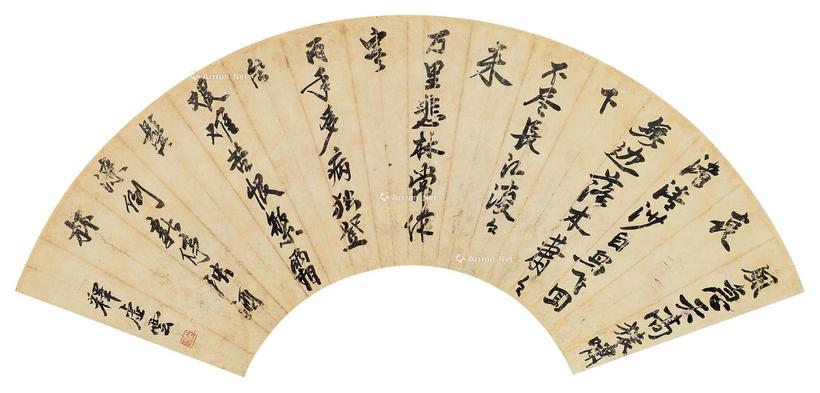 風急天高猿嘯
哀
渚清沙白鳥飛回
無边落木蕭々
下
不尽長江滾々
來
万里悲秋常作
客
百年多病独登
台
艱難苦恨繁霜
鬢
潦倒新停濁酒
杯
釋虛雲
Artron.Net
Artron.Net
Artron.Net